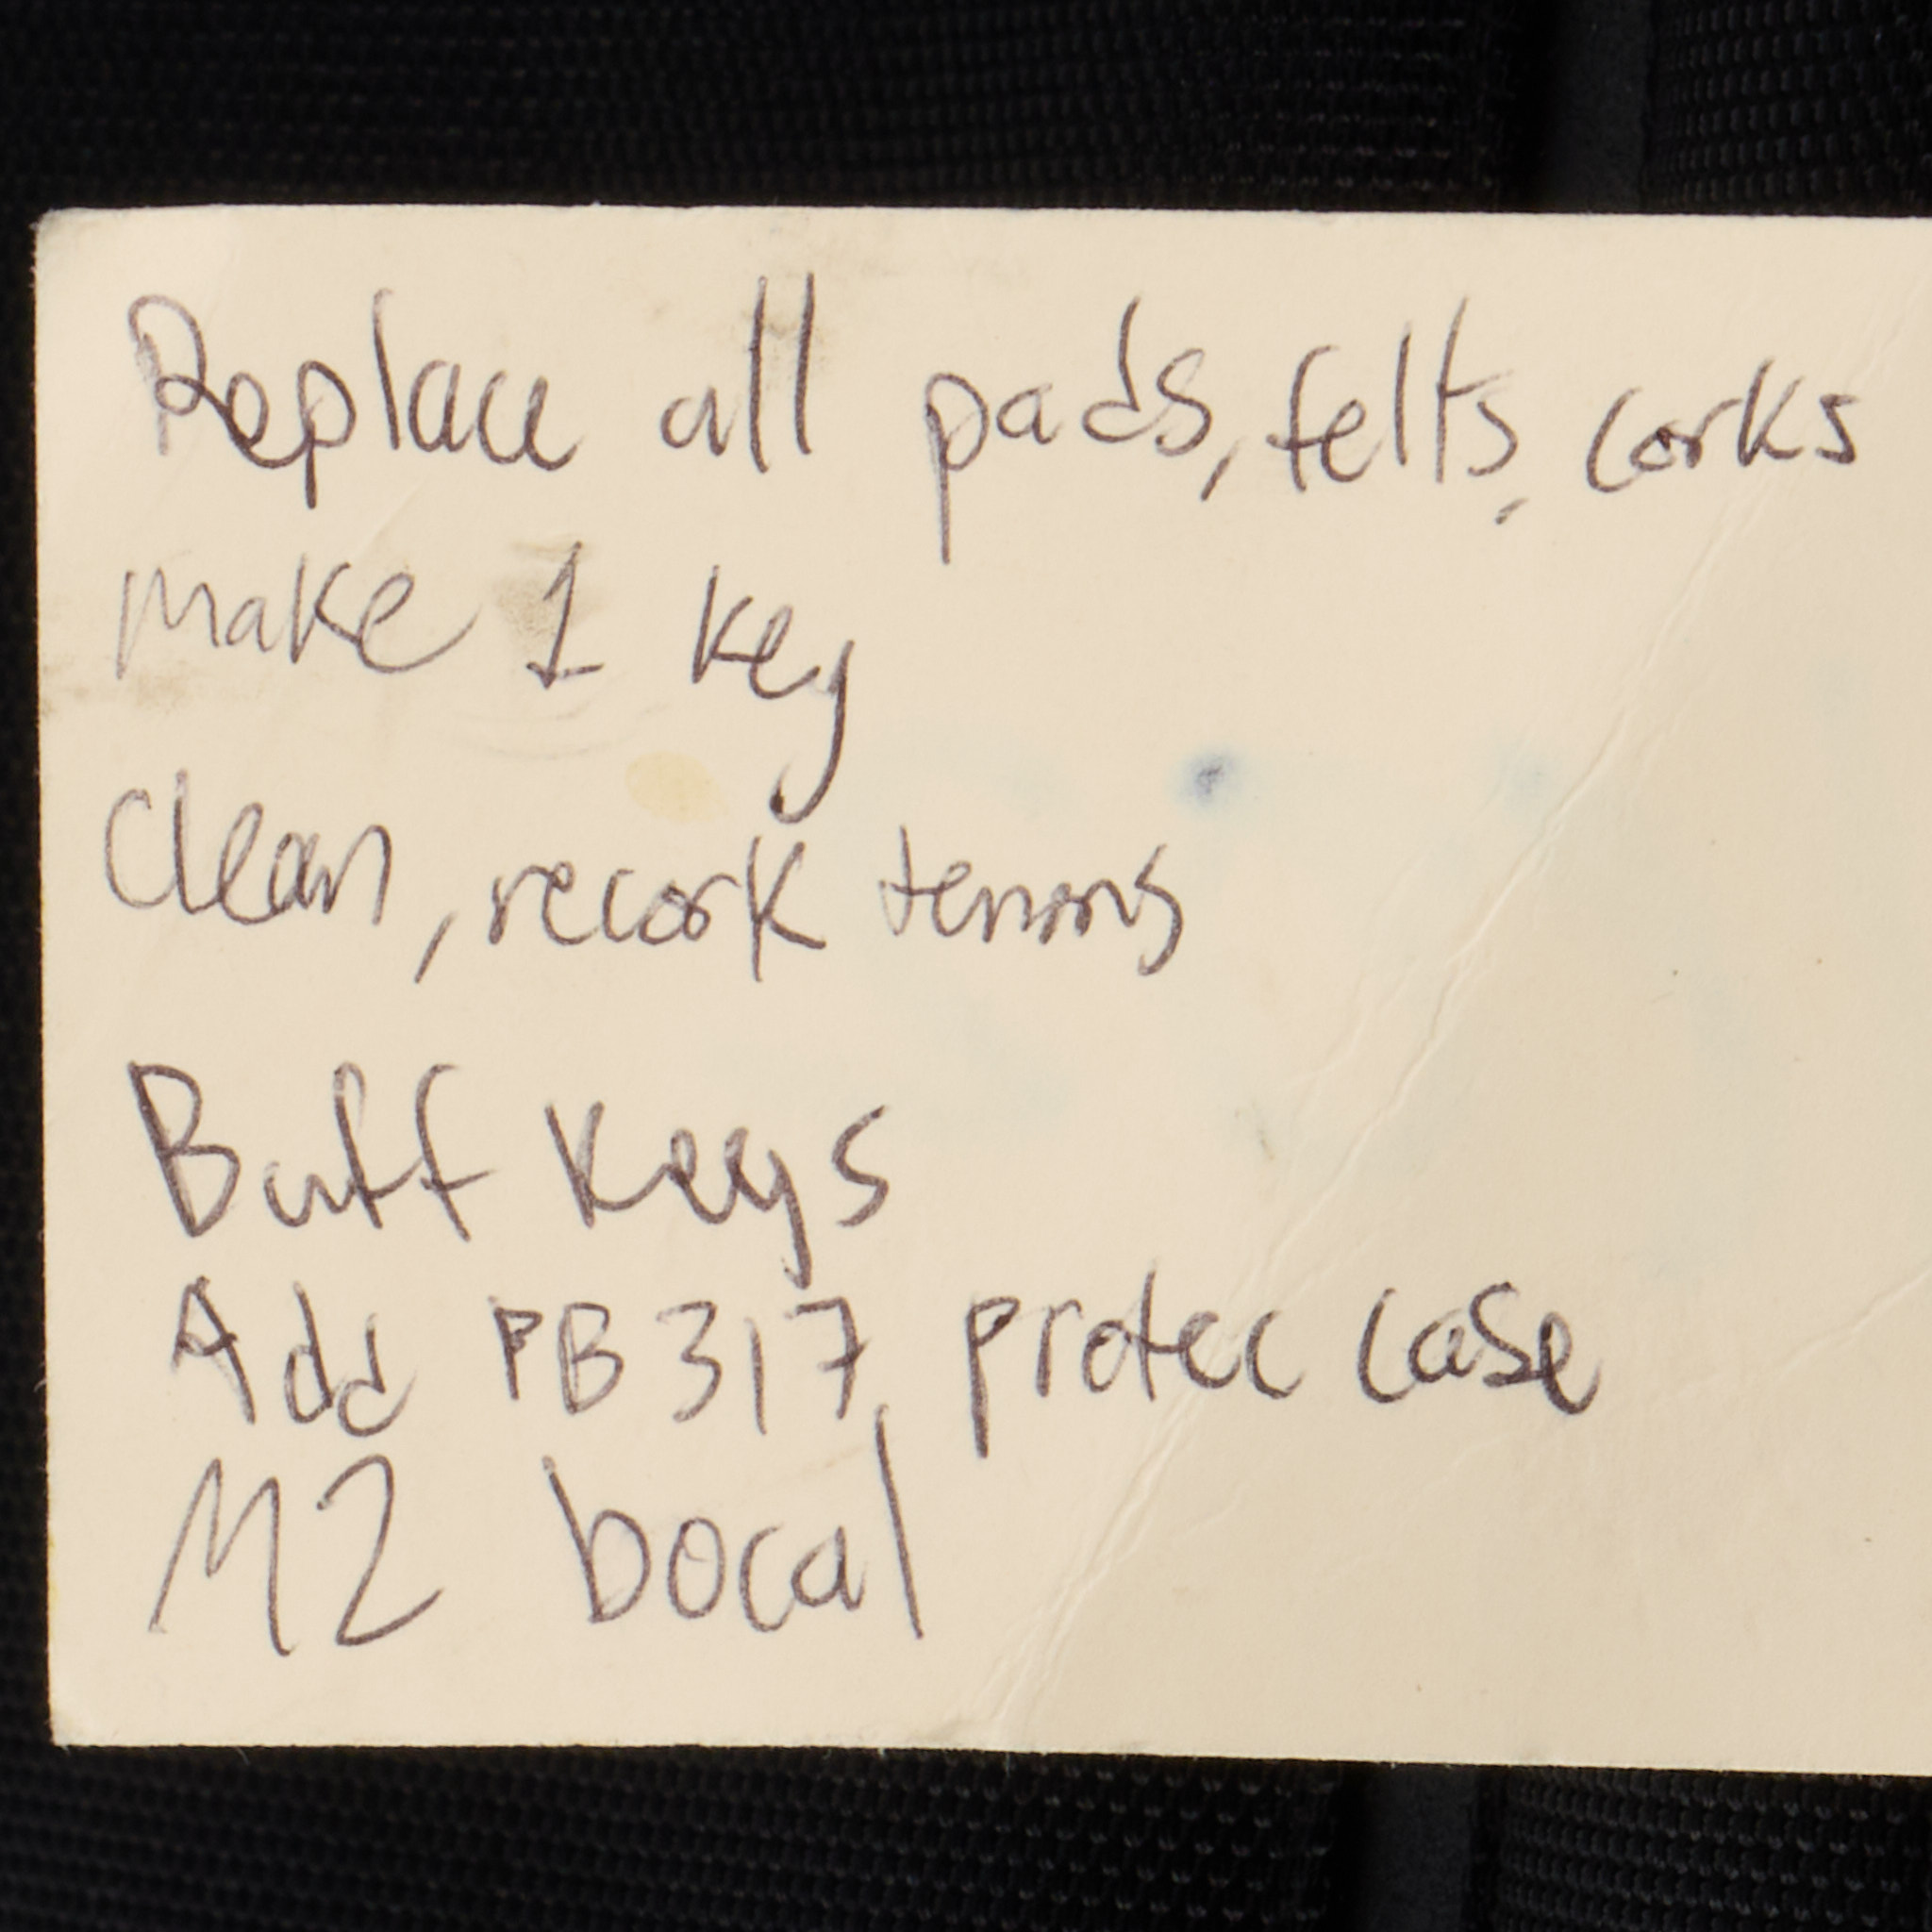 Replace all pads, felts, corks
Make 1 key
Clean, recork tenons
Buff Keys
Add PB317 protec case
M2 bocal